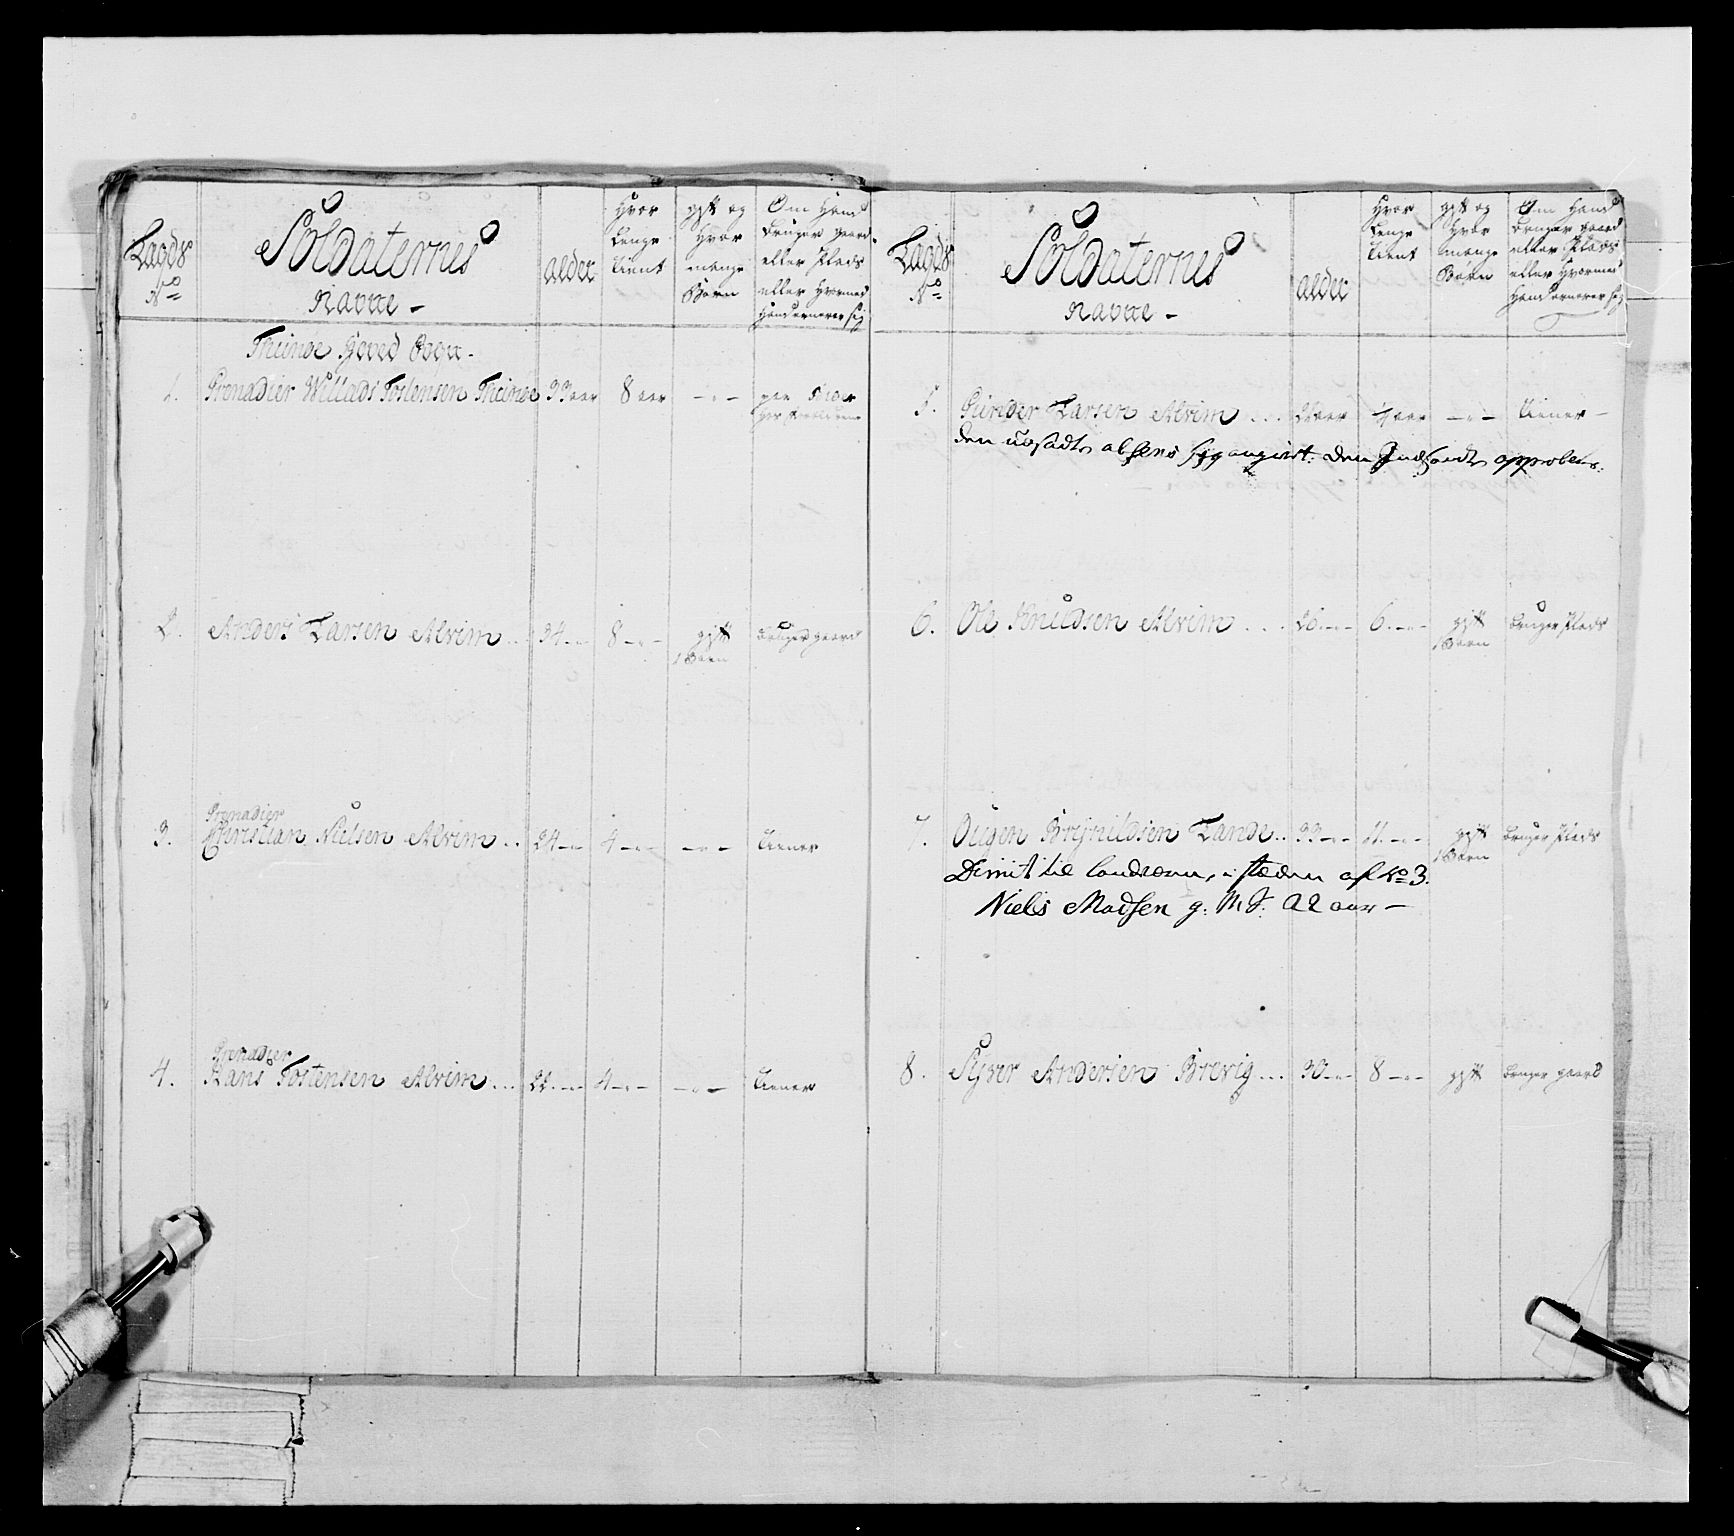 Lagds No
Soldaternes Navne -
alder
Hvor Lenge tient
gift og Hvor mange Børn
Om Hand bruger gaard eller Plads eller Hvormed Hand ernerer sig
Thunøe Hoved Sogn -
1. Grenadier Willads Tostensen Thunøe 33 aar 8 aar - " -
2. Anders Larsen Alvim .. 34 - " - 8 - " - gift 1 Barn bruger gaard
3. Grenadier
Christian Nielsen Alvim .. 24 - " - 4 - " - - " - tiener
4. Grenadier
Hans Tostensen Alvim ... 24 - " - 4 - " - - " - tiener
Lagds No
Soldaternes Navne -
alder
Hvor Lenge tient
gift og Hvor mange Børn
Om Hand bruger gaard eller Plads eller Hvormed Hand ernerer sig
5. Gunder Larsen Alvim ... aar aar - " - tiener -
den absens angivet. den
6. Ole Knudsen Alvim ... 26 - " - 6 - " - gift 1 Barn bruger Plads
7. Ougen Brynildsen Lande .. 33 - " - 11 - " - gift 1 Barn bruger Plads
Dimit til landværn, i stæden af No 3.
Niels Madsen g: M S: 22 aar -
8. Syver Andersen Brevig ... 30 - " - 8 - " - gift bruger gaard